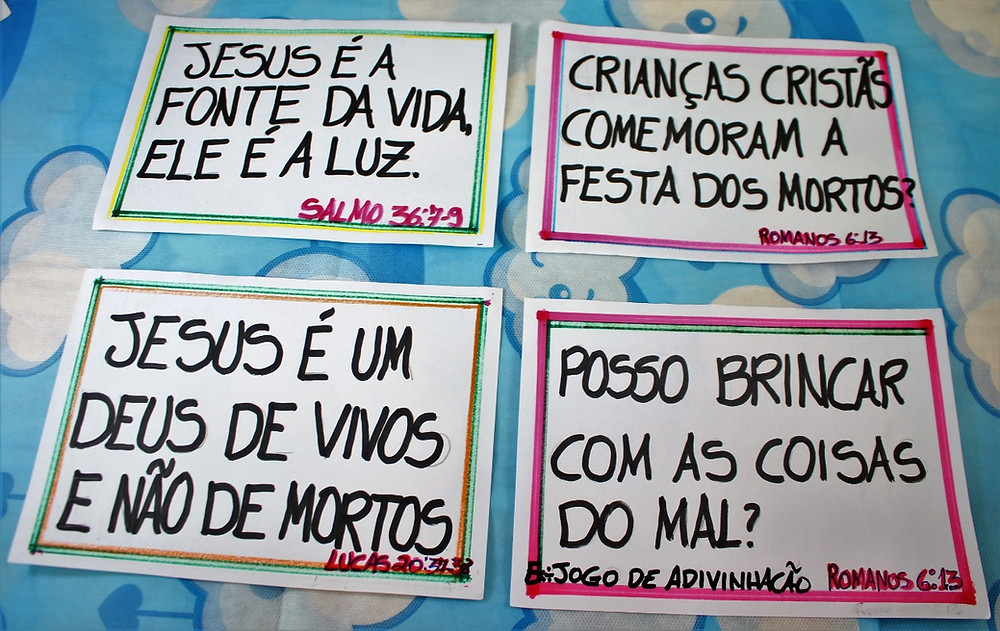 JESUS É A
FONTE DA VIDA,
ELE É A LUZ.
SALMO 36:7-9
CRIANÇAS CRISTÃS
COMEMORAM A
FESTA DOS MORTOS?
ROMANOS 6:13
JESUS É UM
DEUS DE VIVOS
E NÃO DE MORTOS
LUCAS 20:37.38
POSSO BRINCAR
COM AS COISAS
DO MAL?
Ex: JOGO DE ADIVINHAÇÃO ROMANOS 6:13